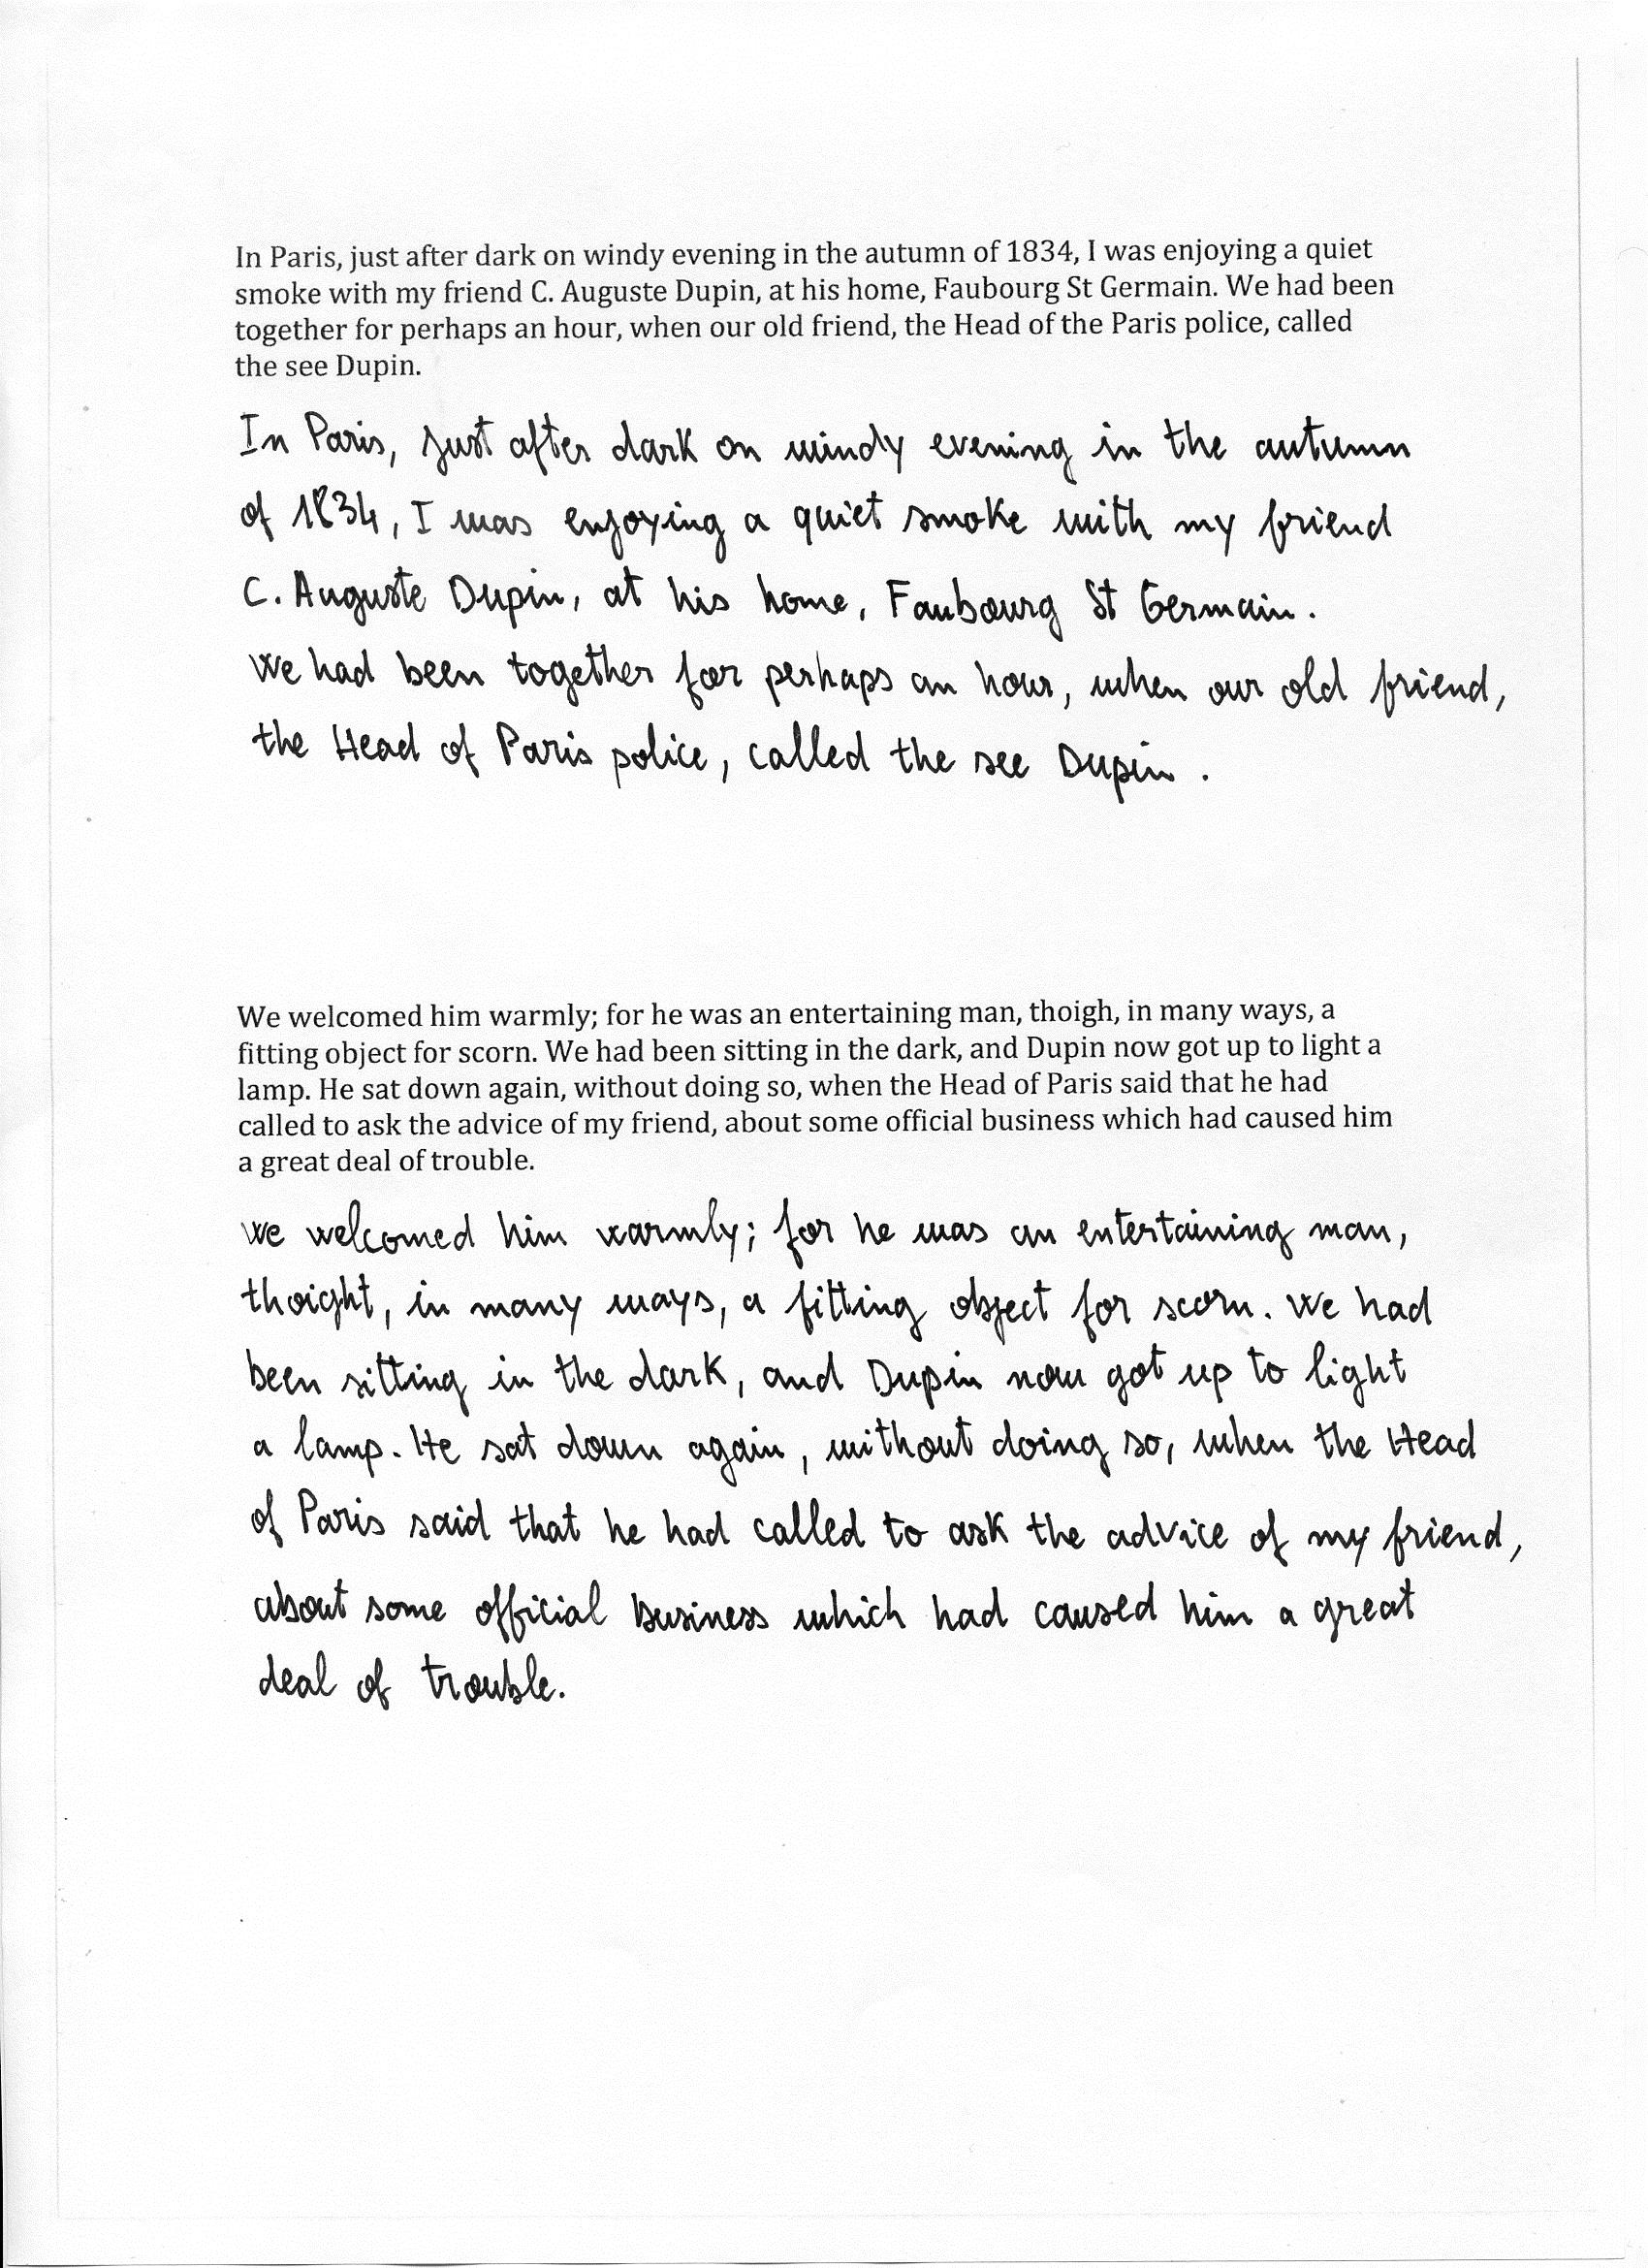 In Paris, just after dark on windy evening in the autumn of 1834, I was enjoying a quiet
smoke with my friend C. Auguste Dupin, at his home, Faubourg St Germain. We had been
together for perhaps an hour, when our old friend, the Head of the Paris police, called
the see Dupin.
In Paris, just after dark on windy evening in the autumn
of 1834, I was enjoying a quiet smoke with my friend
C. Auguste Dupin, at his home, Faubourg St Germain.
We had been together for perhaps an hour, when our old friend,
the Head of Paris police, called the see Dupin.
We welcomed him warmly; for he was an entertaining man, thoigh, in many ways, a
fitting object for scorn. We had been sitting in the dark, and Dupin now got up to light a
lamp. He sat down again, without doing so, when the Head of Paris said that he had
called to ask the advice of my friend, about some official business which had caused him
a great deal of trouble.
We welcomed him warmly; for he was an entertaining man,
thoight, in many ways, a fitting object for scorn. We had
been sitting in the dark, and Dupin now got up to light
a lamp. He sat down again, without doing so, when the Head
of Paris said that he had called to ask the advice of my friend,
about some official business which had caused him a great
deal of trouble.